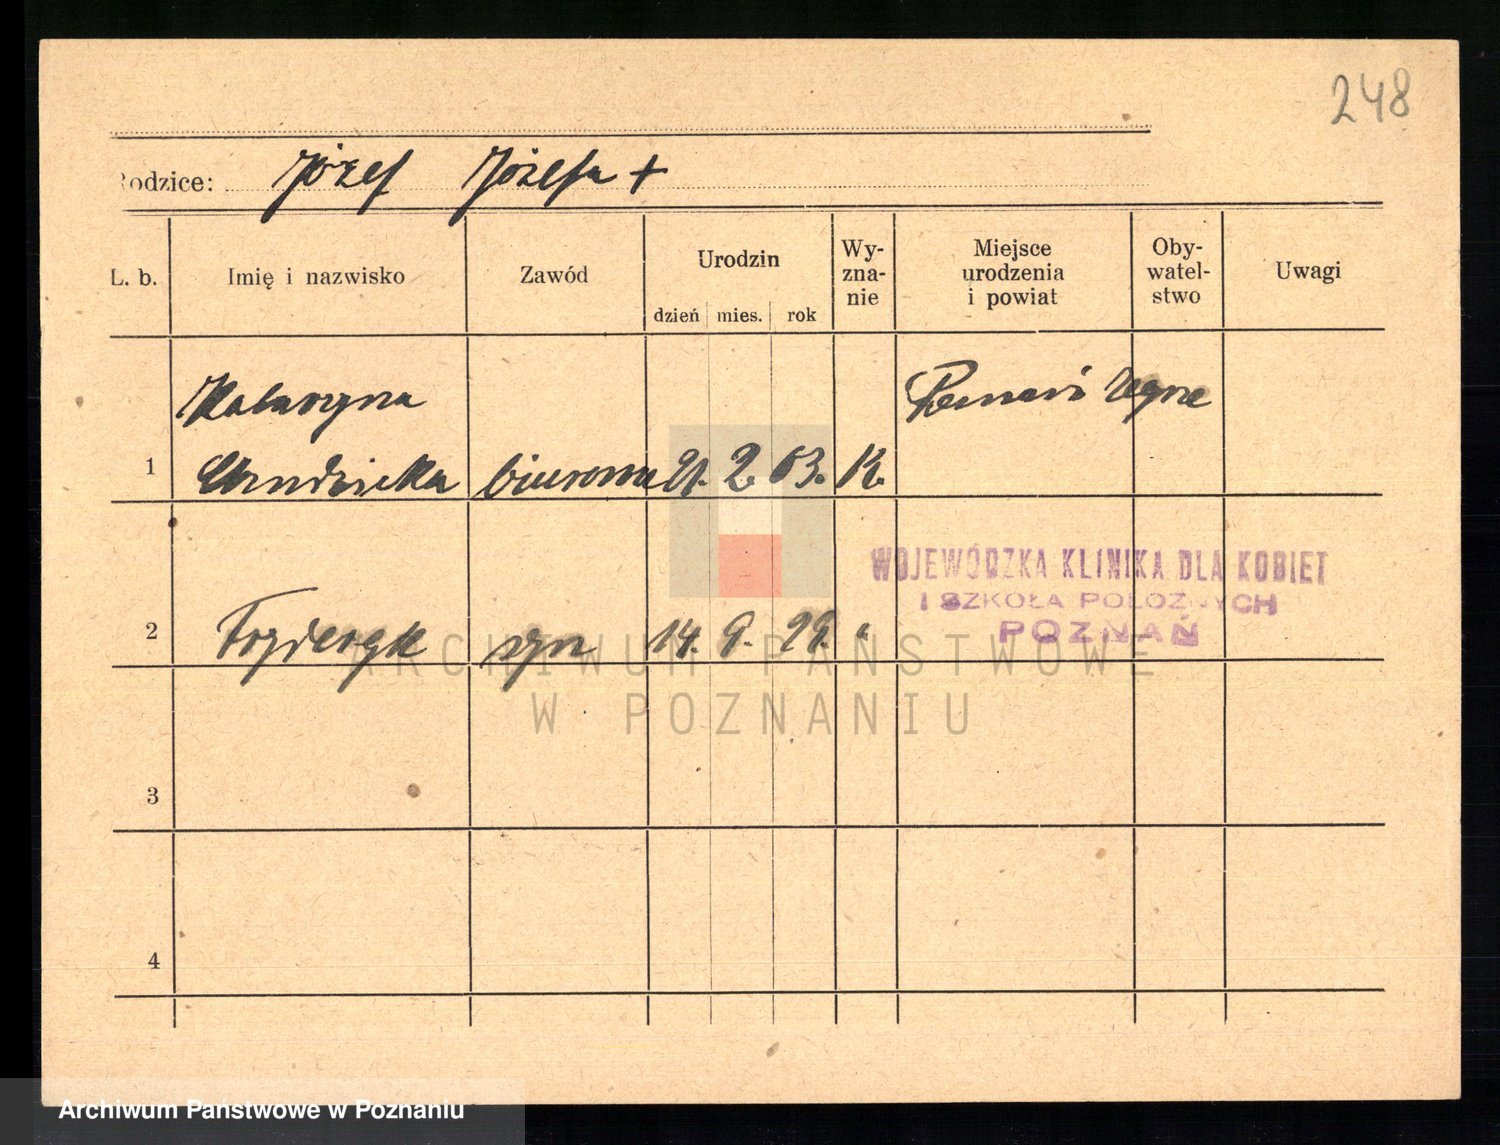 248
Rodzice: Józef Józefa +
L. b. Imię i nazwisko Zawód Urodzin dzień mies. rok Wy-zna-nie Miejsce urodzenia i powiat Oby-watel-stwo Uwagi
Katarzyna
1 biurowa 21. 2. 03. K.
WOJEWÓDZKA KLINIKA DLA KOBIET
I SZKOŁA POŁOŻNYCH
POZNAŃ
2 Fryderyk syn 14. 9. 29. "
ARCHIWUM PAŃSTWOWE
W POZNANIU
3
4
Archiwum Państwowe w Poznaniu